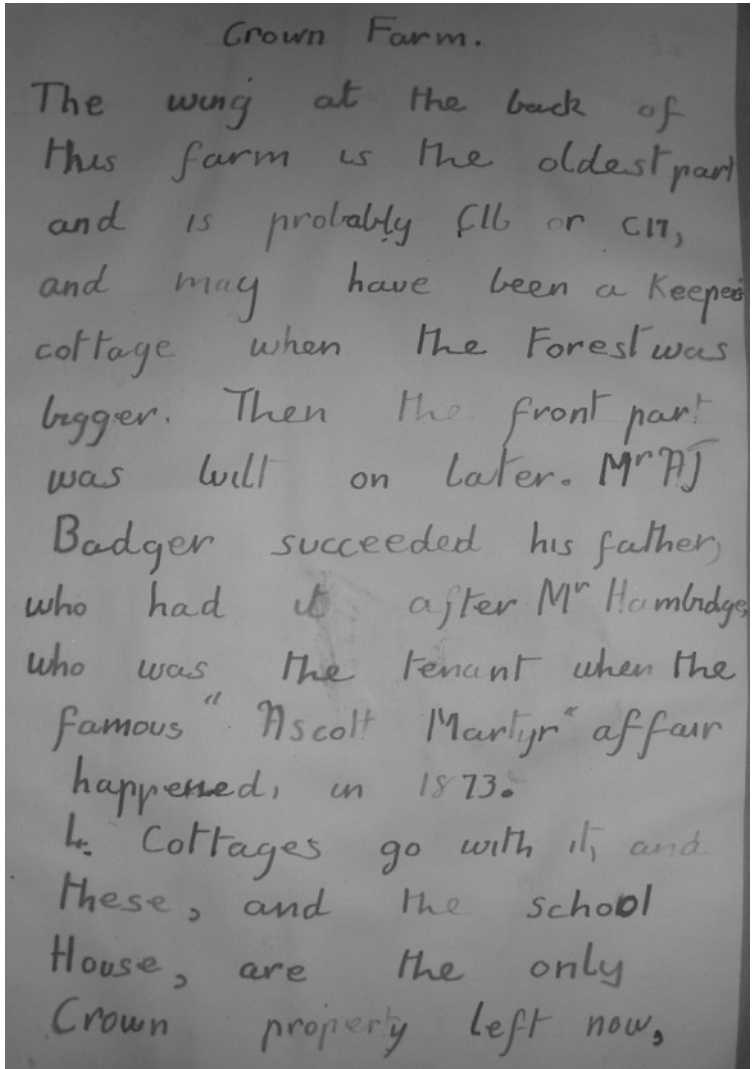 Crown Farm.
The wing at the back of
this farm is the oldest part
and is probably C16 or C17,
and may have been a Keepers
cottage when the Forest was
bigger. Then the front part
was built on later. Mr AJ
Badger succeeded his father,
who had it after Mr Hambidge,
who was the tenant when the
famous "Ascott Martyr" affair
happened, in 1873.
4. Cottages go with it, and
these, and the school
House, are the only
Crown property left now,